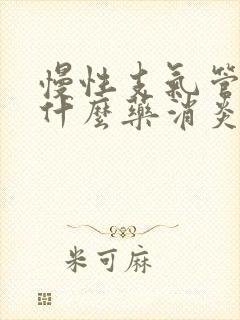 慢性支氣管
什麼藥消炎
米可麻